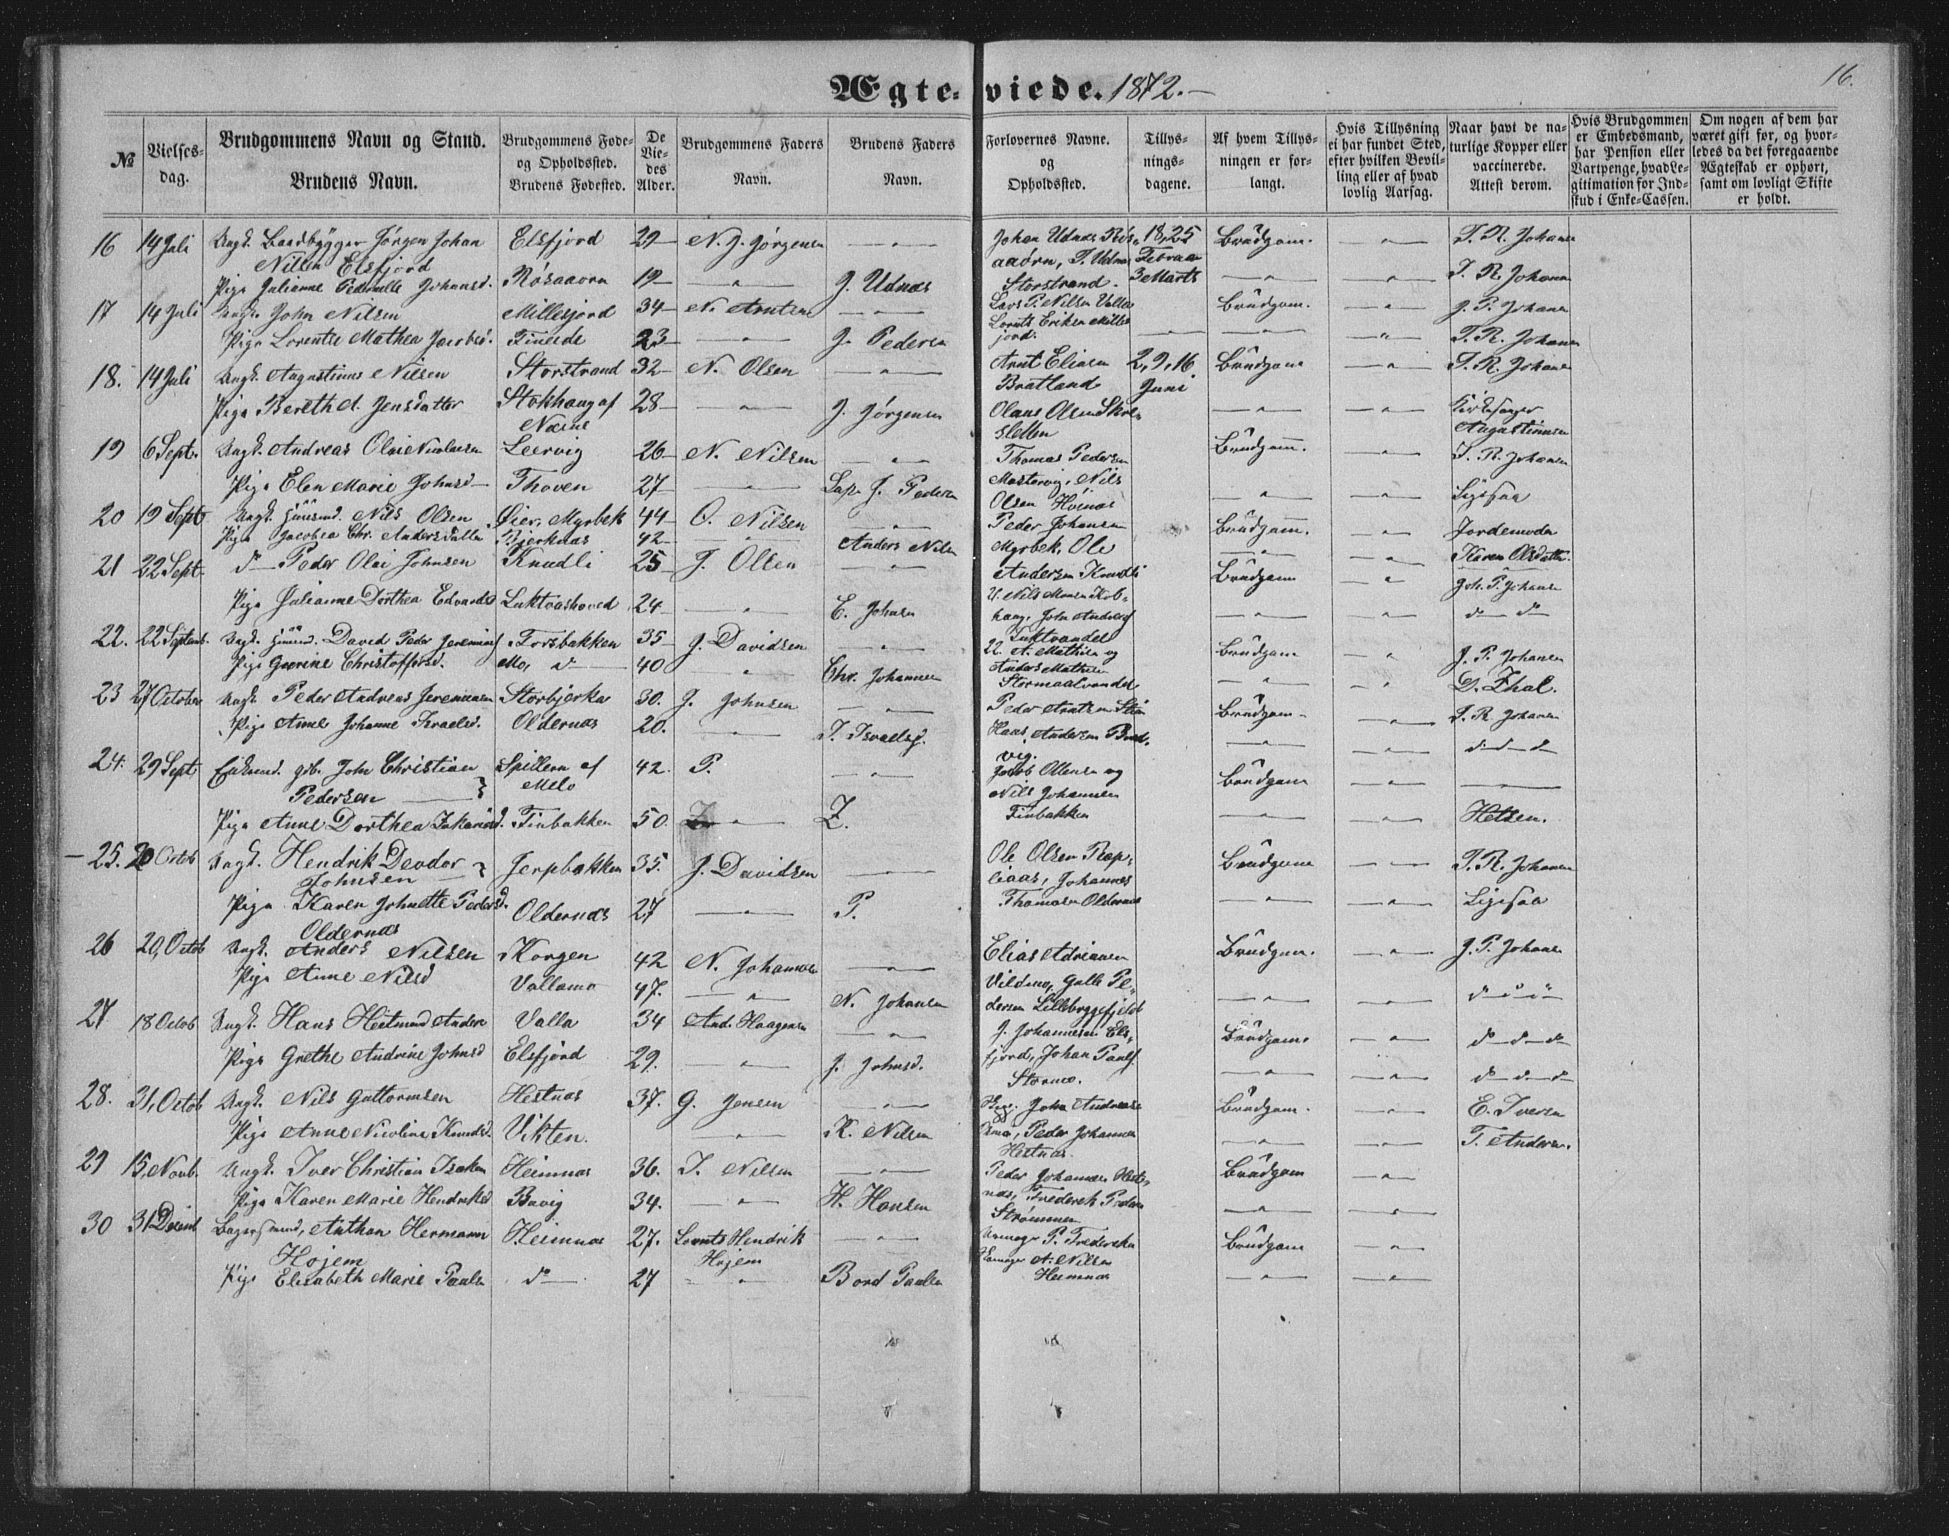 Ægteviede. 1872.
16.
№
Vielsesdag.
Brudgommens Navn og Stand.
Brudens Navn.
Brudgommens Føde- og Opholdssted.
Brudens Fødested.
De Viedes Alder.
Brudgommens Faders Navn.
Brudens Faders Navn.
Forlovernes Navne. og Opholdssted.
Tillysningsdagene.
Af hvem Tillysningen er forlangt.
Hvis Tillysning ei har fundet Sted, efter hvilken Bevilling eller af hvad lovlig Aarsag.
Naar havt de naturlige Kopper eller vaccinerede. Attest derom.
Hvis Brudgommen er Embedsmand, har Pension eller Vartpenge, hvad Legitimation for Indskud i Enke-Cassen.
Om nogen af dem har været gift før, og hvorledes da det foregaaende Ægteskab er ophørt, samt om lovligt Skifte er holdt.
16 14 Juli Ungk. Baadbygger Jørgen Johan Elsfjord 29 N. J. Jørgensen Johan Udnæs 18, 25 Brudgom. T. R. Johansen
Nilsen Elsfjord Februar
Pige Julianne Johansd. Røsaaoren 19 J. Udnæs Storstrand. 3 Marts T. R. Johansen
17 14 Juli Ungk. John Nilsen Millesjord 34 N. Arntsen Lars P. Nilsen Brudgom. J. P. Johansen
Pige Lorentse Mathea Jacobsd. Fineide 23 J. Pedersen Lorents Eriksen T. R. Johansen
18. 14 Juli Ungk. Augustinus Nilsen Storstrand 32 N. Olsen Arnt Eliasen 2, 9, 16 Brudgom T. R. Johansen
Bratland Juni
Pige Berethe Jensdatter Stokhaug af 28 J. Jørgensen Olaus Olsen Kirkesanger
Næsne Augustinusen
19 6 Sept. Ungk. Andreas Olai Nicolaisen Leervig 26 N. Nilsen Thomas Pedersen Brudgom. T. R. Johansen
Pige Elen Marie Johnsd Thoven 27 J. Pedersen Mastervig, Nils Ligesaa
20 19 Sept Ungk. Nils Olsen Øier, Myrbek 44 O. Nilsen Olsen Høinæs
Peder Johansen Brudgom. Jordemoder
Pige Jacobea Chr. Andersdatter Bjerknæs 42 Anders Nilsen Myrbek, Ole Karen Olsdatter
21 22 Sept. d Peder Olai Johnsen Knudli 25 J. Olsen Andersen Knudli Brudgom Joh. P. Johansen
Pige Julianne Dorthea Edvardsd Luktvashoved 24 E. Johnsen U. Nils Monsen d d
22. 22 Septemb. Ungk. David Peder Jeremias Forsbakken 35 J. Davidsen Luktvandet Brudgom J. P. Johansen
Pige Grorine Christoffersd. Mo, d 40 Chr. Johannesen A. Mathisen og D. Zhal.
Anders Mathisen
Stormaalvandet
23 27 October Ungk. Peder Andreas Jeremiasen Storbjerka 30. J. Johnsen Peder Arntsen Brudgom. T. R. Johansen
Pige Anne Johanne Israelsd. Oldernæs 20. I. Israels. Hans Andersen d d d
24. 29 Sept. Enkemd. gdb. John Christian Spillern af 42. P. Jacob Ottersen og Brudgom
Pedersen Melø Nils Johannesen
Pige Anne Dorthea Zakariasd. Finbakken 50. Z. Finbakken Hetzen.
25. 20 Octob Ungk. Hendrik Deodor Jerpbakken 35. J. Davidsen Ole Olsen Brudgom T. R. Johansen
Johnsen Johannes
Pige Karen Johnette Pedersd. Oldernæs 27 P. Thomasen Oldernæs Ligesaa
Oldernæs
26 20, Octob Ungk. Anders Nilsen Korgen 42 N. Johannesen Elias Adriansen Brudgom. J. P. Johansen
Pige Anne Nilsd Vallamo 47. N. Johansen d
27 18 Octob Ungk. Hans Hestmand Anders Valla 34 And. Haagensen J. Johannesen Els- Brudgom. d d d
Pige Grethe Andrine Johnsd Elsfjord 29. J. Johnsd. fjord, Johan Pauls d d d
Stormo.
28. 31, Octob Ungk. Nils Guttormsen Hestnæs 37. G. Jensen John Andreas Brudgom. E. Iversen
Pige Anne Nicoline Knudsd. Vikten. K. Nilsen Peder Johannesen T. Andersen.
Hestnæs.
29 15, Novb. Ungk. Iver Christian Isaksen Heimnæs 36. I. Nilsen Peder Johansen Hest- Brudgom
Pige Karen Marie Hendriksd Bavig 34. H. Hansen næs, Frederek Peders
Strømmen
30 31 Decemb Bagersvend, Anthon Hermann Heimnæs 27. Lornts Hendrik P. Frederiksen Brudgom
Højem Højem A. Nilsen
Pige Elisabeth Marie Paulsen d 27 Bord Paulsen Heimnæs